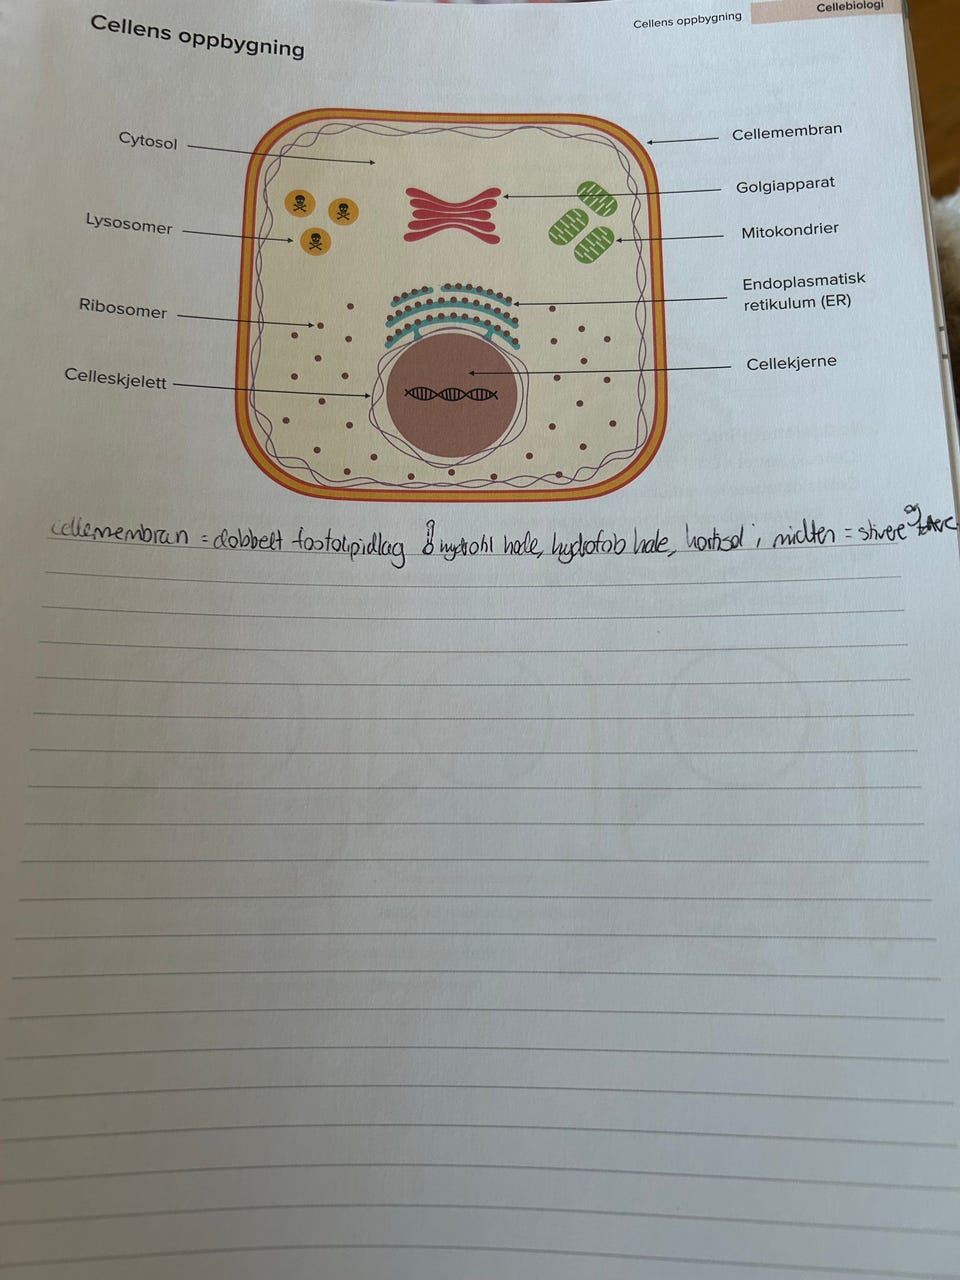 Cellens oppbygning
Cellens oppbygning
Cellebiologi
Cytosol
Cellemembran
Golgiapparat
Lysosomer
Mitokondrier
Endoplasmatisk
retikulum (ER)
Ribosomer
Cellekjerne
Celleskjelett
cellemembran = dobbelt fosfolipidlag hale, hydrofob hale, i midten = stivere og